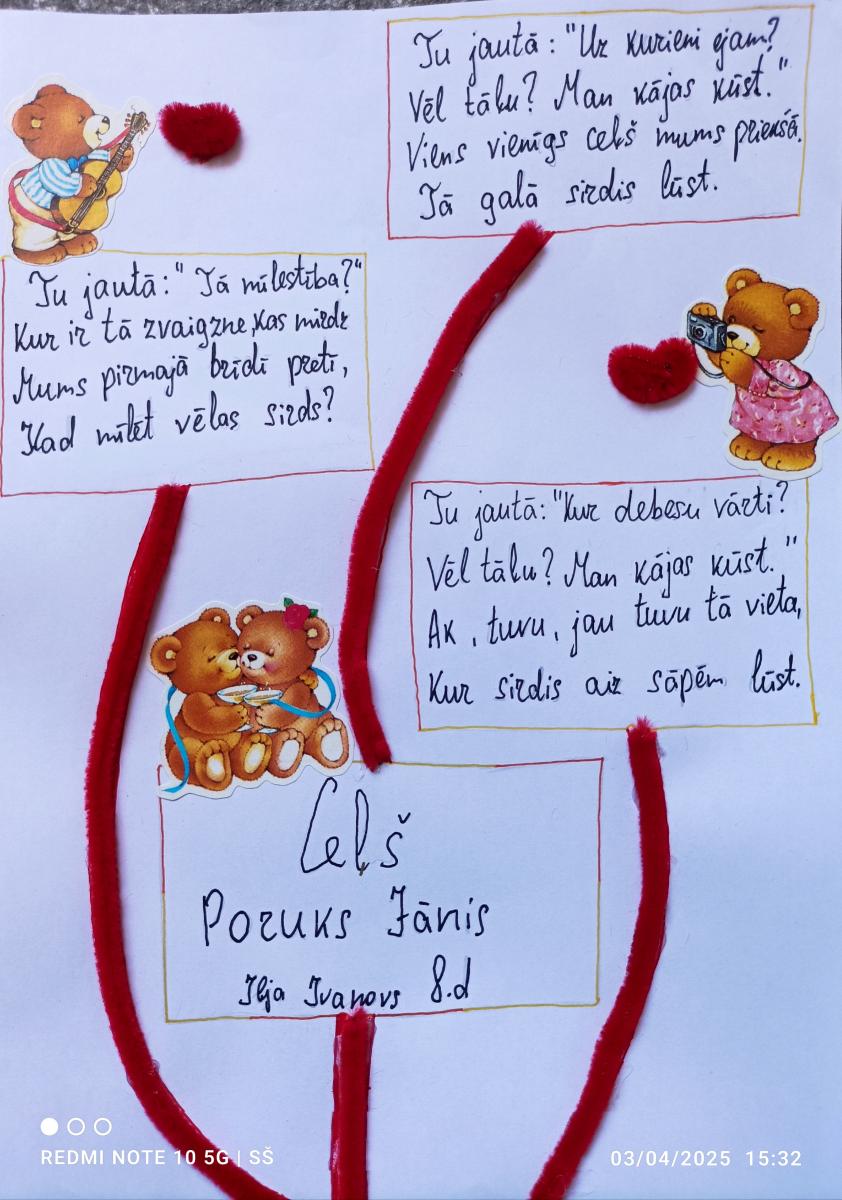 Tu jautā: "Uz kurieni ejam?
Vēl tālu? Man kājas kūst."
Viens vienīgs ceļš mums priekšā.
Tā galā sirdis lūst.
Tu jautā: "Tā mīlestība?"
Kur ir tā zvaigzne, kas mirdz
Mums pirmajā brīdī pretī,
Kad mīlēt vēlas sirds?
Tu jautā: "Kur debesu vārti?
Vēl tālu? Man kājas kūst."
Ak, tuvu, jau tuvu tā vieta,
Kur sirdis aiz sāpēm lūst.
Ceļš
Poruks Jānis
Iļja Ivanovs 8.d
REDMI NOTE 10 5G | SŠ
03/04/2025 15:32